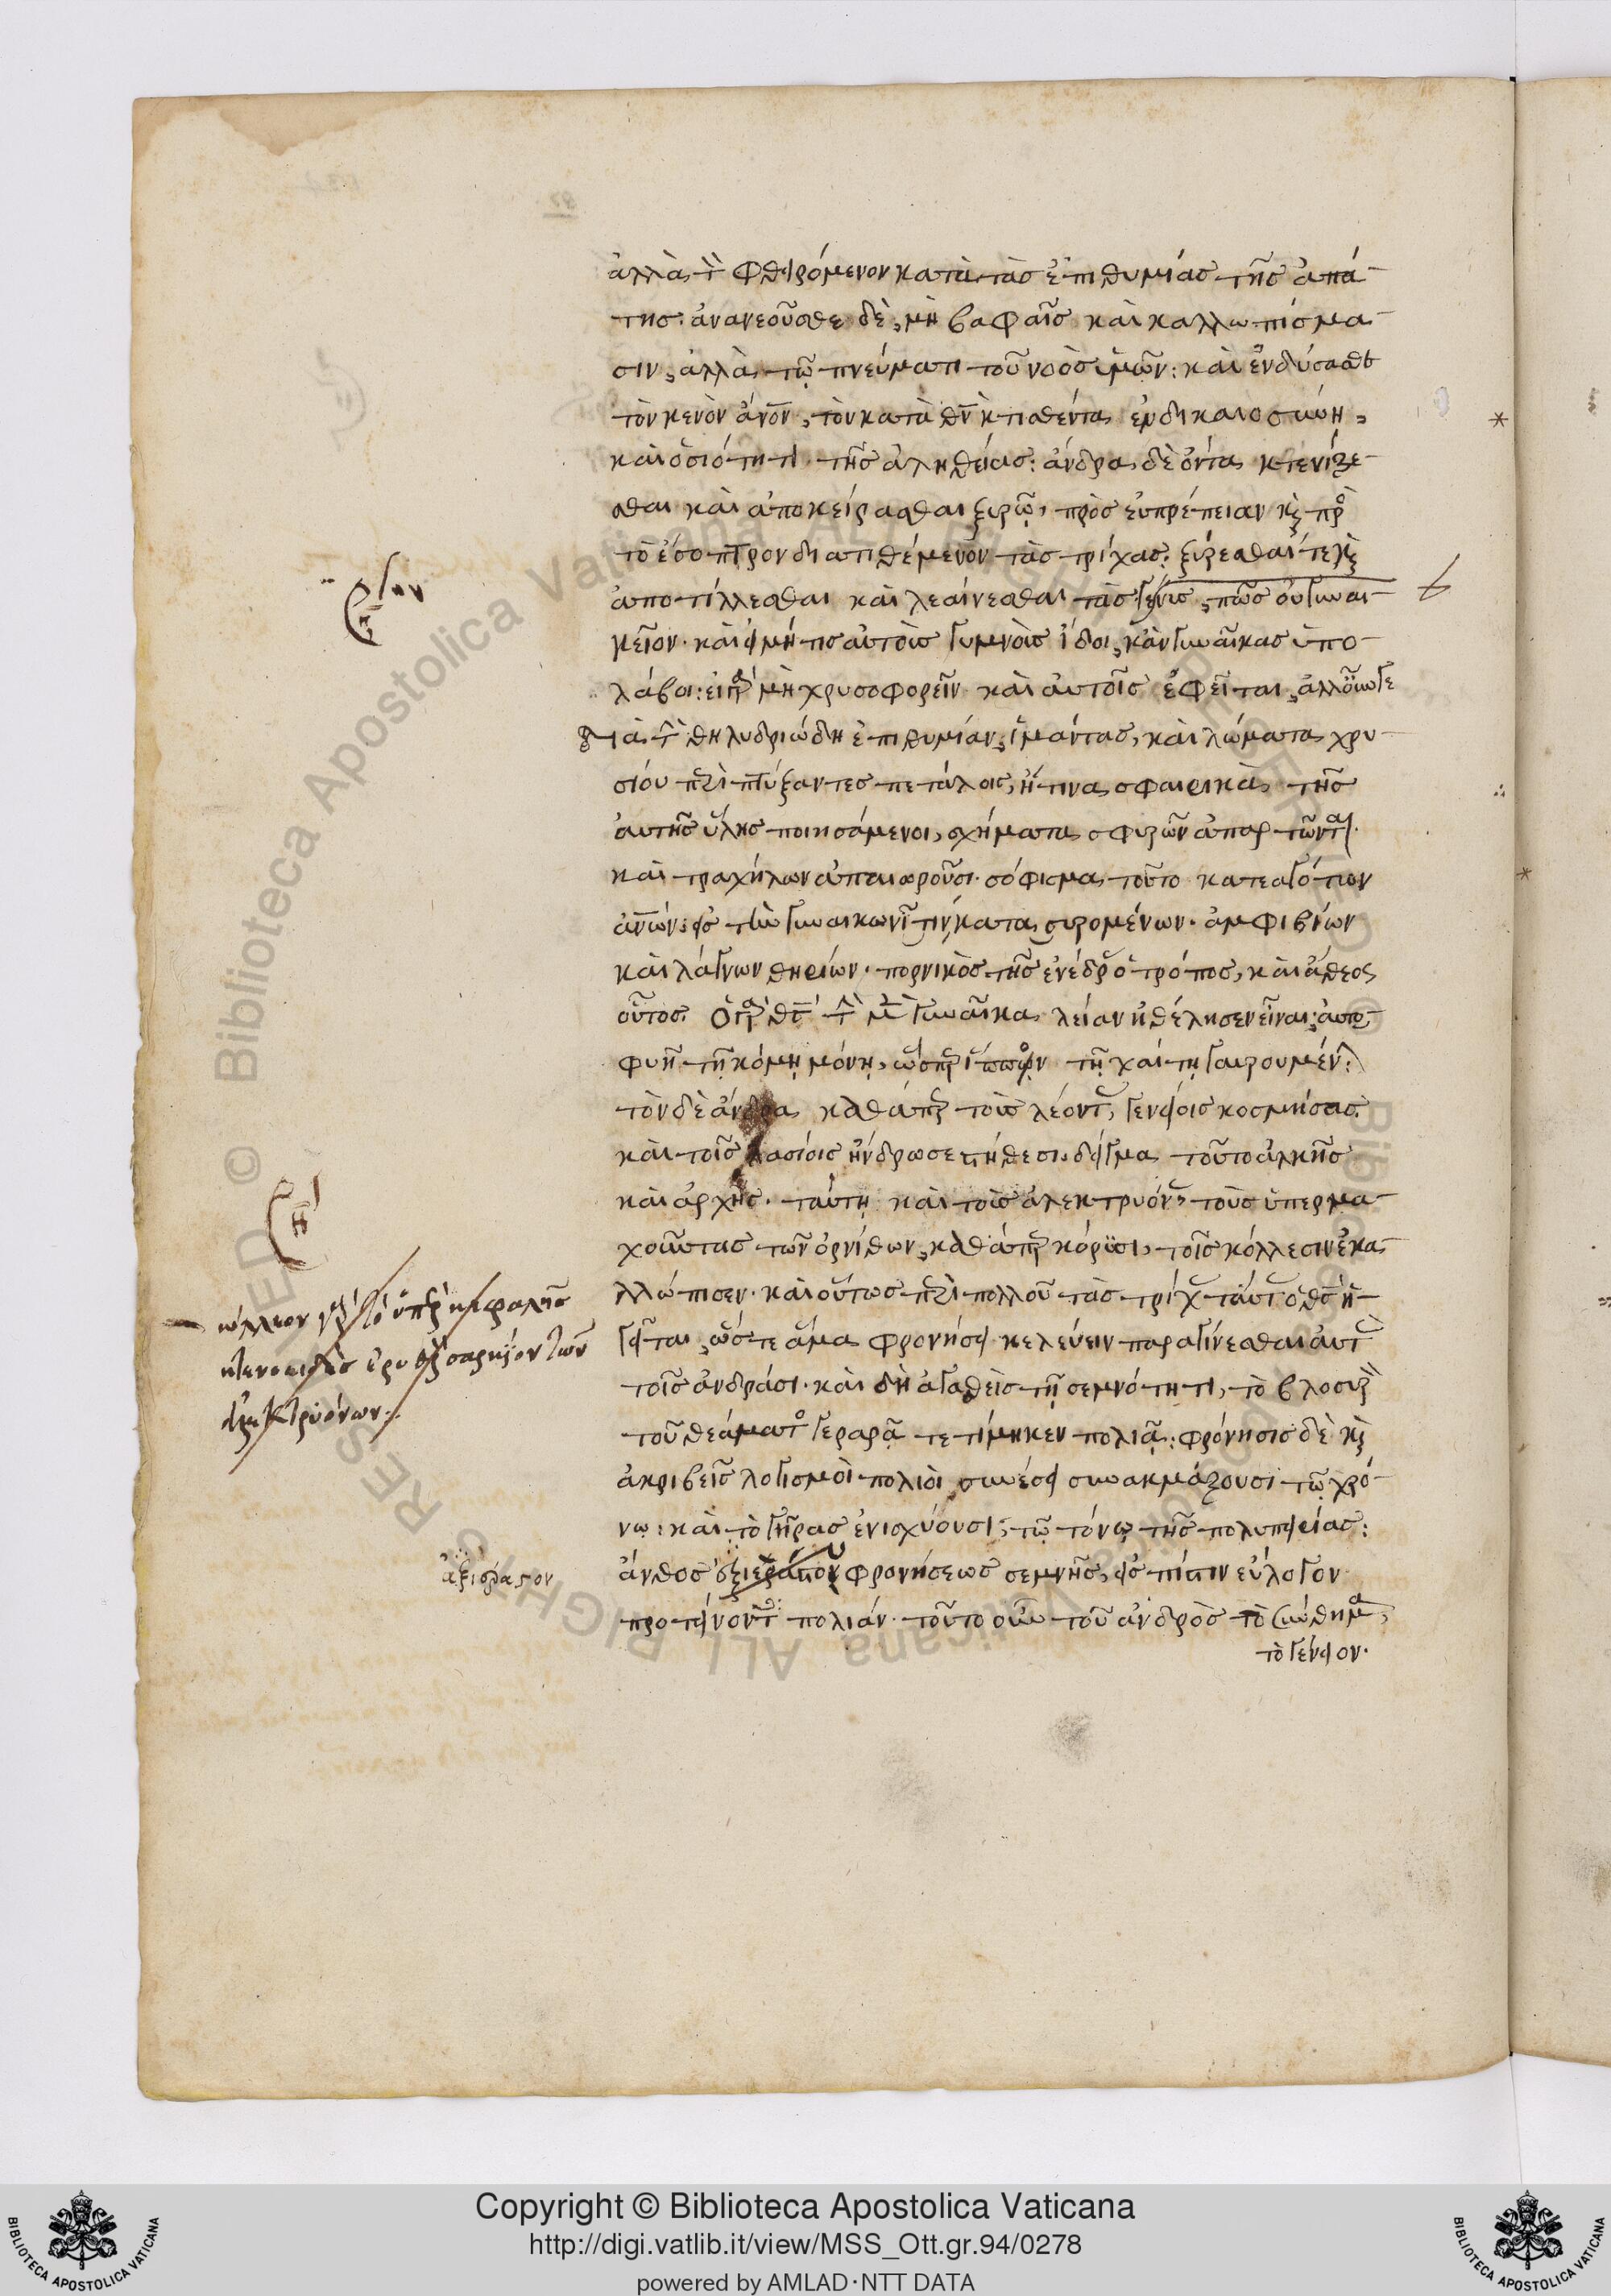 ἀλλὰ τὸν φθειρόμενον κατὰ τὰς ἐπιθυμίας τῆς ἀπά-
της· ἀνανεοῦσθε δὲ, μὴ βαφαῖς καὶ καλλωπίσμα-
σιν, ἀλλὰ τῷ πνεύματι τοῦ νοὸς ὑμῶν: καὶ ἐνδύσασθε
τὸν κενὸν ἀνον, τὸν κατὰ θν κτισθέντα ἐν δικαιοσύνη,
καὶ ὁσιότητι τῆς ἀληθείας: ἄνδρα δὲ ὄντα κτενίζε-
σθαι καὶ ἀποκείρασθαι ξυρῷ, πρὸς εὐπρέπειαν καὶ πρὸς
τὸ ἔσοπτρον διατιθέμενον τὰς τρίχας: ξύρεσθαί τε καὶ
ἀποτίλλεσθαι καὶ λεαίνεσθαι τὰς γένυς, πῶς οὐ γυναι-
κεῖον· καὶ εἰ μή τις αὐτοὺς γυμνοὺς ἴδοι, κἂν γυναῖκας ὑπο-
λάβοι: εἰ γὰρ μὴ χρυσοφορεῖν καὶ αὐτοῖς ἐφεῖται, ἀλλ' οὖν γε
διὰ τὴν θηλυδριώδη ἐπιθυμίαν, ἱμάντας, καὶ λώματα χρυ-
σίου περιπτύξαντες πετάλοις, ἤ τινα σφαιρικὰ τῆς
αὐτῆς ὕλης ποιησάμενοι, σχήματα σφυρῶν ἀπαρτῶνται·
καὶ τραχήλων ἀπαιωροῦσι· σόφισμα τοῦτο κατεαγότων
ἀνων: εἰς τὴν γυναικωνῖτιν κατασυρομένων· ἀμφιβίων
καὶ λάγνων θηρίων· πορνικὸς τῆς ἐνέδρας ὁ τρόπος, καὶ ἄθεος
οὗτος. Ὁ γὰρ θς τὴν μὲν γυναῖκα λείαν ἠθέλησεν εἶναι, αὐτο-
φυῆ τῇ κόμῃ μόνῃ, ὥσπερ ἵππον τῇ χαίτῃ γαυρουμένην:
τὸν δὲ ἄνδρα καθάπερ τοὺς λέοντας γενείοις κοσμήσας
καὶ τοῖς λασίοις ἤνδρωσε στήθεσι. δεῖγμα τοῦτο ἀλκῆς
καὶ ἀρχῆς· ταύτῃ καὶ τοὺς ἀλεκτρυόνας, τοὺς ὑπερμα-
χοῦντας τῶν ὀρνίθων, καθάπερ κόρυσι, τοῖς κάλλεσιν ἐκα-
λλώπισεν· καὶ οὕτως περὶ πολλοῦ τὰς τρίχας ταύτας ὁ θς ἡ-
γεῖται, ὥστε ἅμα φρονήσει κελεύειν παραγίνεσθαι αὐτὰς
τοῖς ἀνδράσι· καὶ δὴ ἀγασθεὶς τῇ σεμνότητι, τὸ βλοσυρὸν
τοῦ θεάματος γεραρᾷ τετίμηκεν πολιᾷ: φρόνησις δὲ καὶ
ἀκριβεῖς λογισμοὶ πολιοὶ συνέσει συνακμάζουσι τῷ χρό-
νῳ: καὶ τὸ γῆρας ἐνισχύουσι, τῷ τόνῳ τῆς πολυπειρίας:
ἄνθος ἀξιέραστον φρονήσεως σεμνῆς, εἰς πίστιν εὔλογον
προτείνοντες πολιάν· τοῦτο οὖν τοῦ ἀνδρὸς τὸ σύνθημα,
τὸ γένειον.
κάλλεον γὰρ τὸ ὑπὲρ κεφαλῆς
κτενοειδὲς ἐρυθρὸν σαρκίον τῶν
ἀλεκτρυόνων
ἀξιέραστον